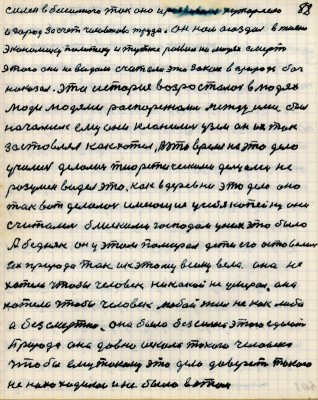 83
силен в бессилного так оно и держалось
народ за счет чужового труда. он нам создал в жизни
экономику, политику и пустил
этого они не видали считали это закон в природе бог
наказы. Эта история возросталов в людях
люди людями распоряжались между ими был
начальник ему они кланялись он их так
заставлял как хотел, в это время на это дело
учились делами теоретическими делами, не
разумел видел это. как в деревне это дело оно
так вот делалось имеющия у себя копейку они
считались близкими господам у них это было
А бедняк он у этом помирал дети его оставались
их природа так их к этому всему вела. она не
хотела чтобы человек никакой не умирал, она
хотела чтобы человек любой жил не как либо
а бессмертно. она была бессильна этого сделать
Природа она давно искала такого человека
чтобы ему такому это дело доверить такого
не находилося и не было в этом